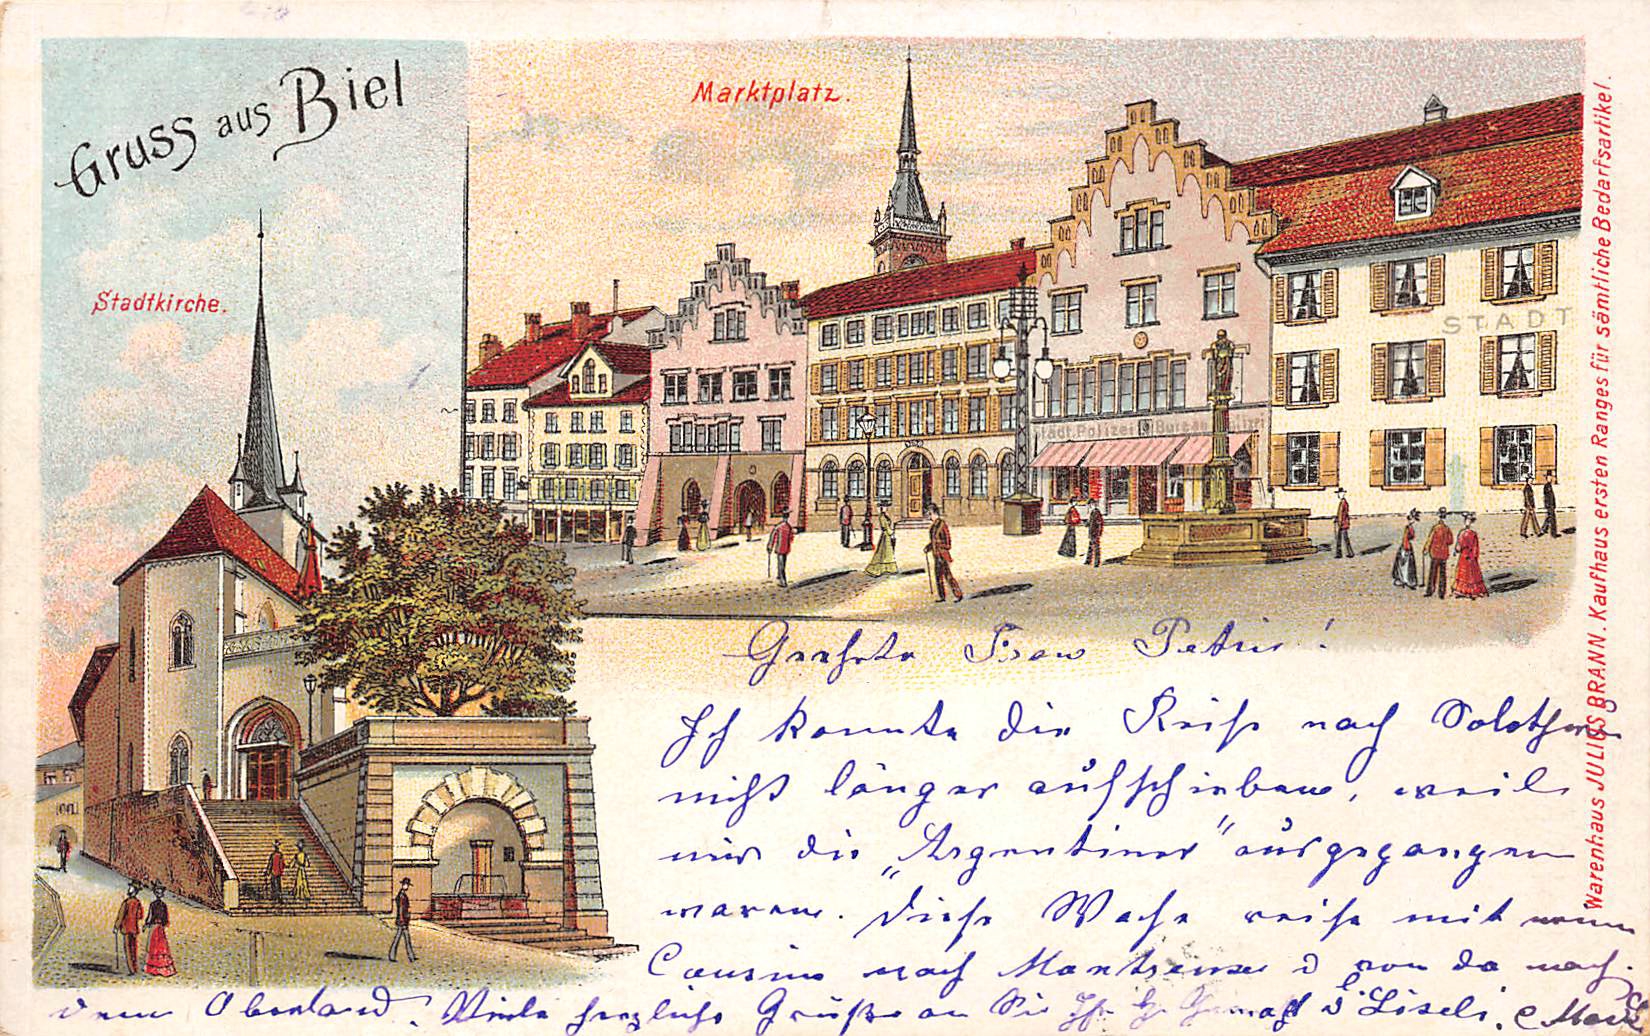 Gruss aus Biel
Marktplatz.
Stadtkirche.
STADT
Städt. Polizei Bureau
Warenhaus JULIUS BRANN. Kaufhaus ersten Ranges für sämtliche Bedarfsartikel.
Geehrte Frau Petri!
Ich konnte die Reise nach Solothurn
nicht länger aufschieben, weil
mir die „Argentiner" ausgegangen
waren. Diese Woche reise mit mein
Cousine nach Montreux & von da nach
dem Oberland. Viele herzliche Grüße an Sie Ihr Gemahl & Liseli.